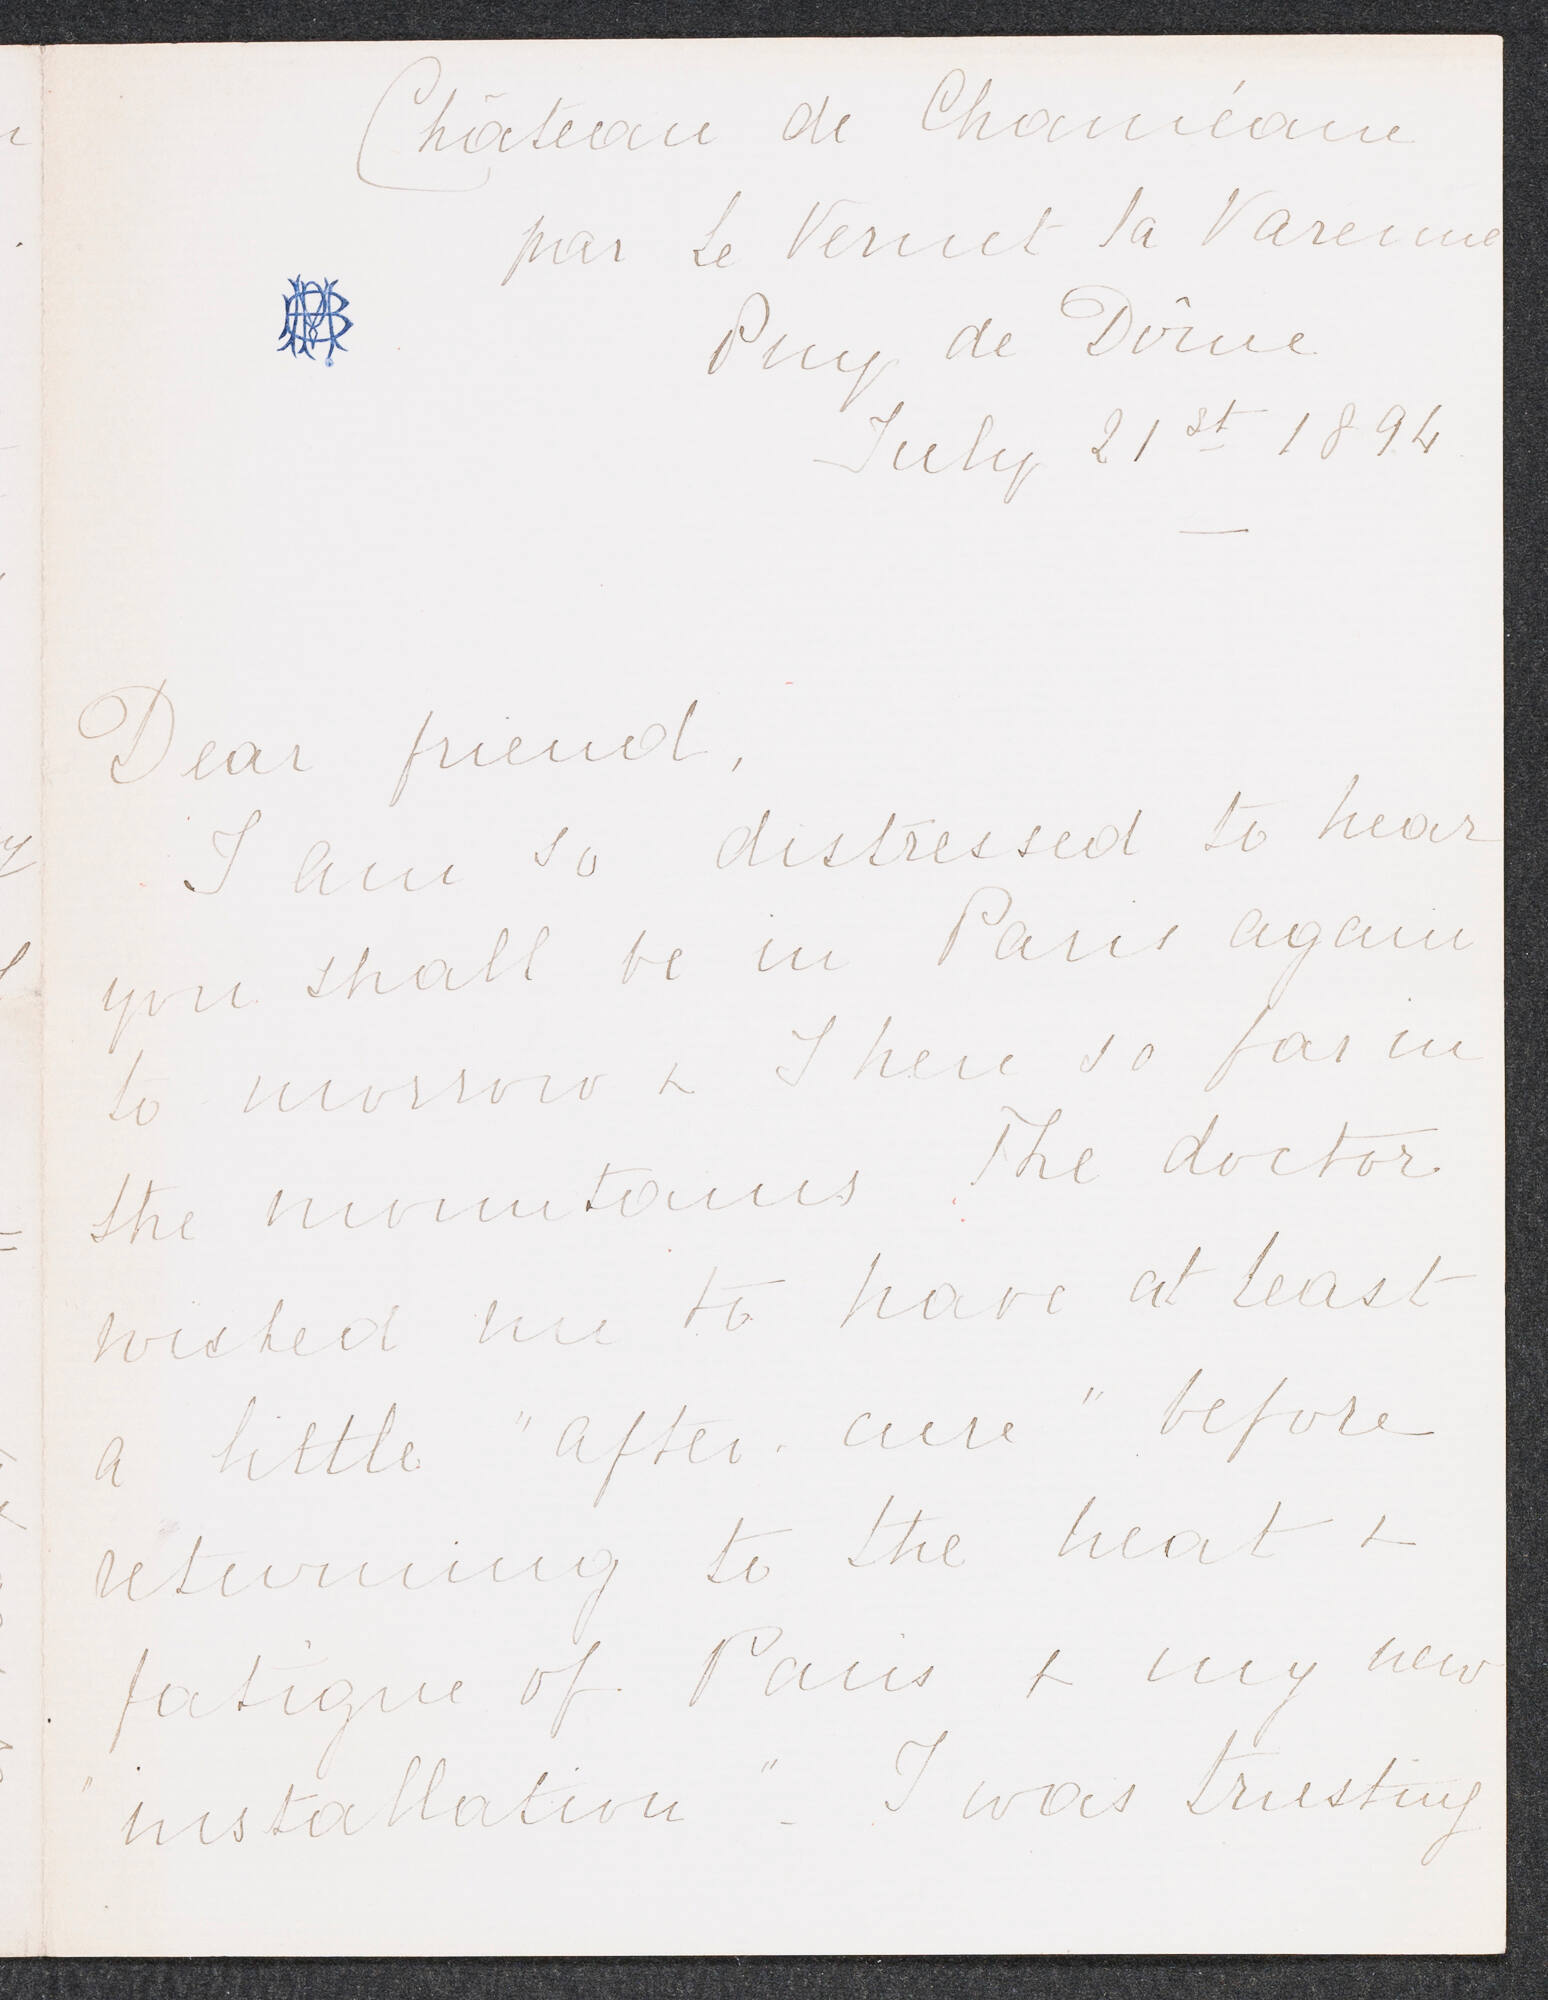 Château de Chaméane
par Le Vernet la Varenne
Puy de Dôme
July 21st 1894
Dear friend,
I am so distressed to hear
you shall be in Paris again
to morrow & I here so far in
the mountains The doctor
wished me to have at least
a little "after. cure" before
returning to the heat &
fatigue of Paris & my new
"installation" - I was trusting